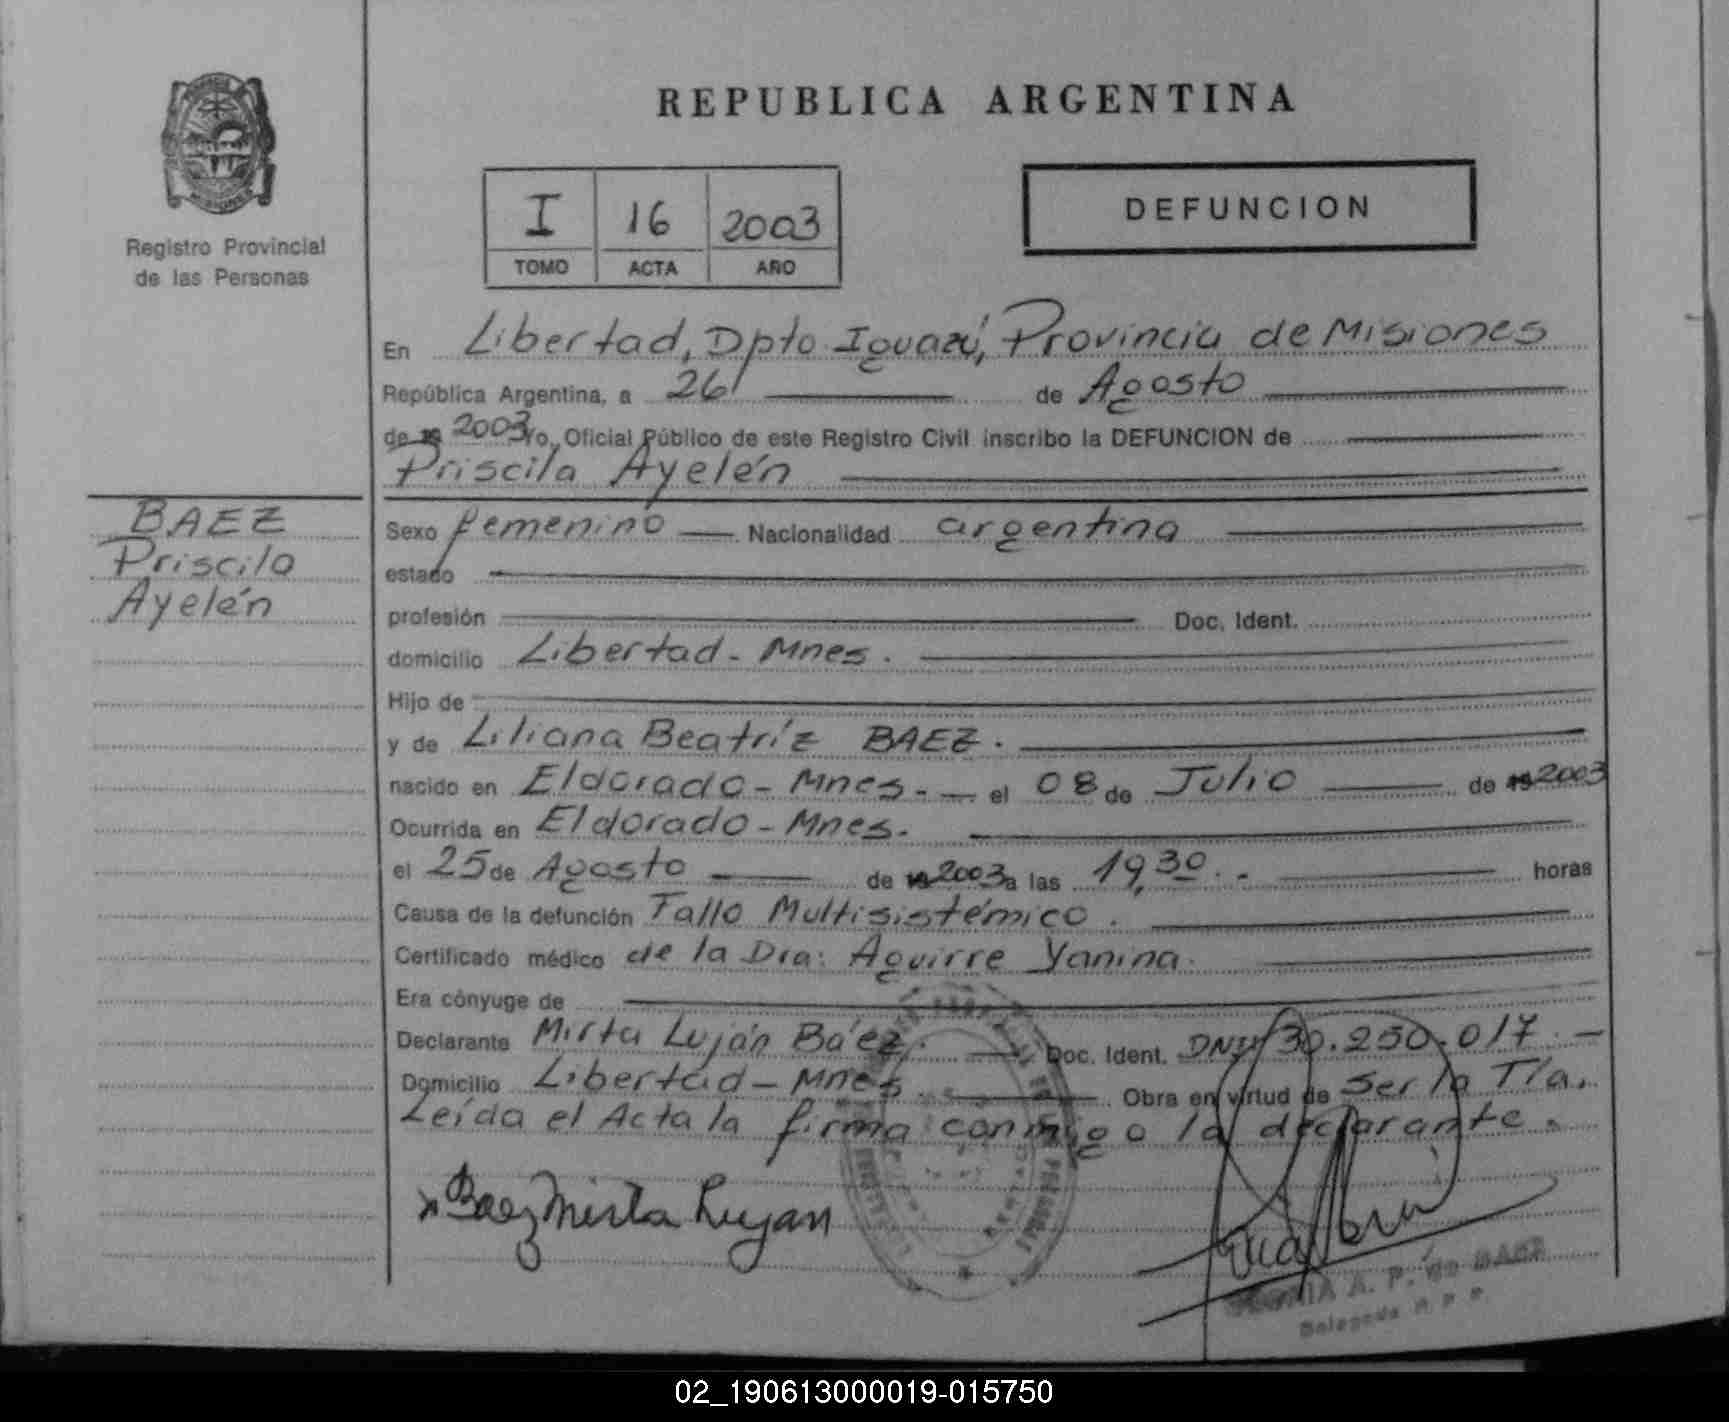 REPUBLICA ARGENTINA
I 16 2003
TOMO ACTA AÑO
DEFUNCION
Registro Provincial
de las Personas
En Libertad, Dpto Iguazú, Provincia de Misiones
República Argentina, a 26 de Agosto
de 19 2003 Yo, Oficial Público de este Registro Civil inscribo la DEFUNCION de
Priscila Ayelén
BAEZ
Priscila
Ayelén
Sexo femenino Nacionalidad argentina
estado
profesión Doc. Ident.
domicilio Libertad - Mnes.
Hijo de
y de Liliana Beatríz BAEZ.
nacido en Eldorado - Mnes. - el 08 de Julio de 19 2003
Ocurrida en Eldorado - Mnes.
el 25 de Agosto de 19 2003 a las 19,30 . - horas
Causa de la defunción Fallo Multisistémico.
Certificado médico de la Dra: Aguirre Yanina.
Era cónyuge de
Declarante Mirta Luján Báez. Doc. Ident. DNI 30.250.017. -
Domicilio Libertad - Mnes. Obra en virtud de Ser la Tía.
Leída el Acta la firma conmigo la declarante.
x Baez Mirta Lujan
A. P. de BAEZ
Delegada R. P. P.
02_190613000019-015750